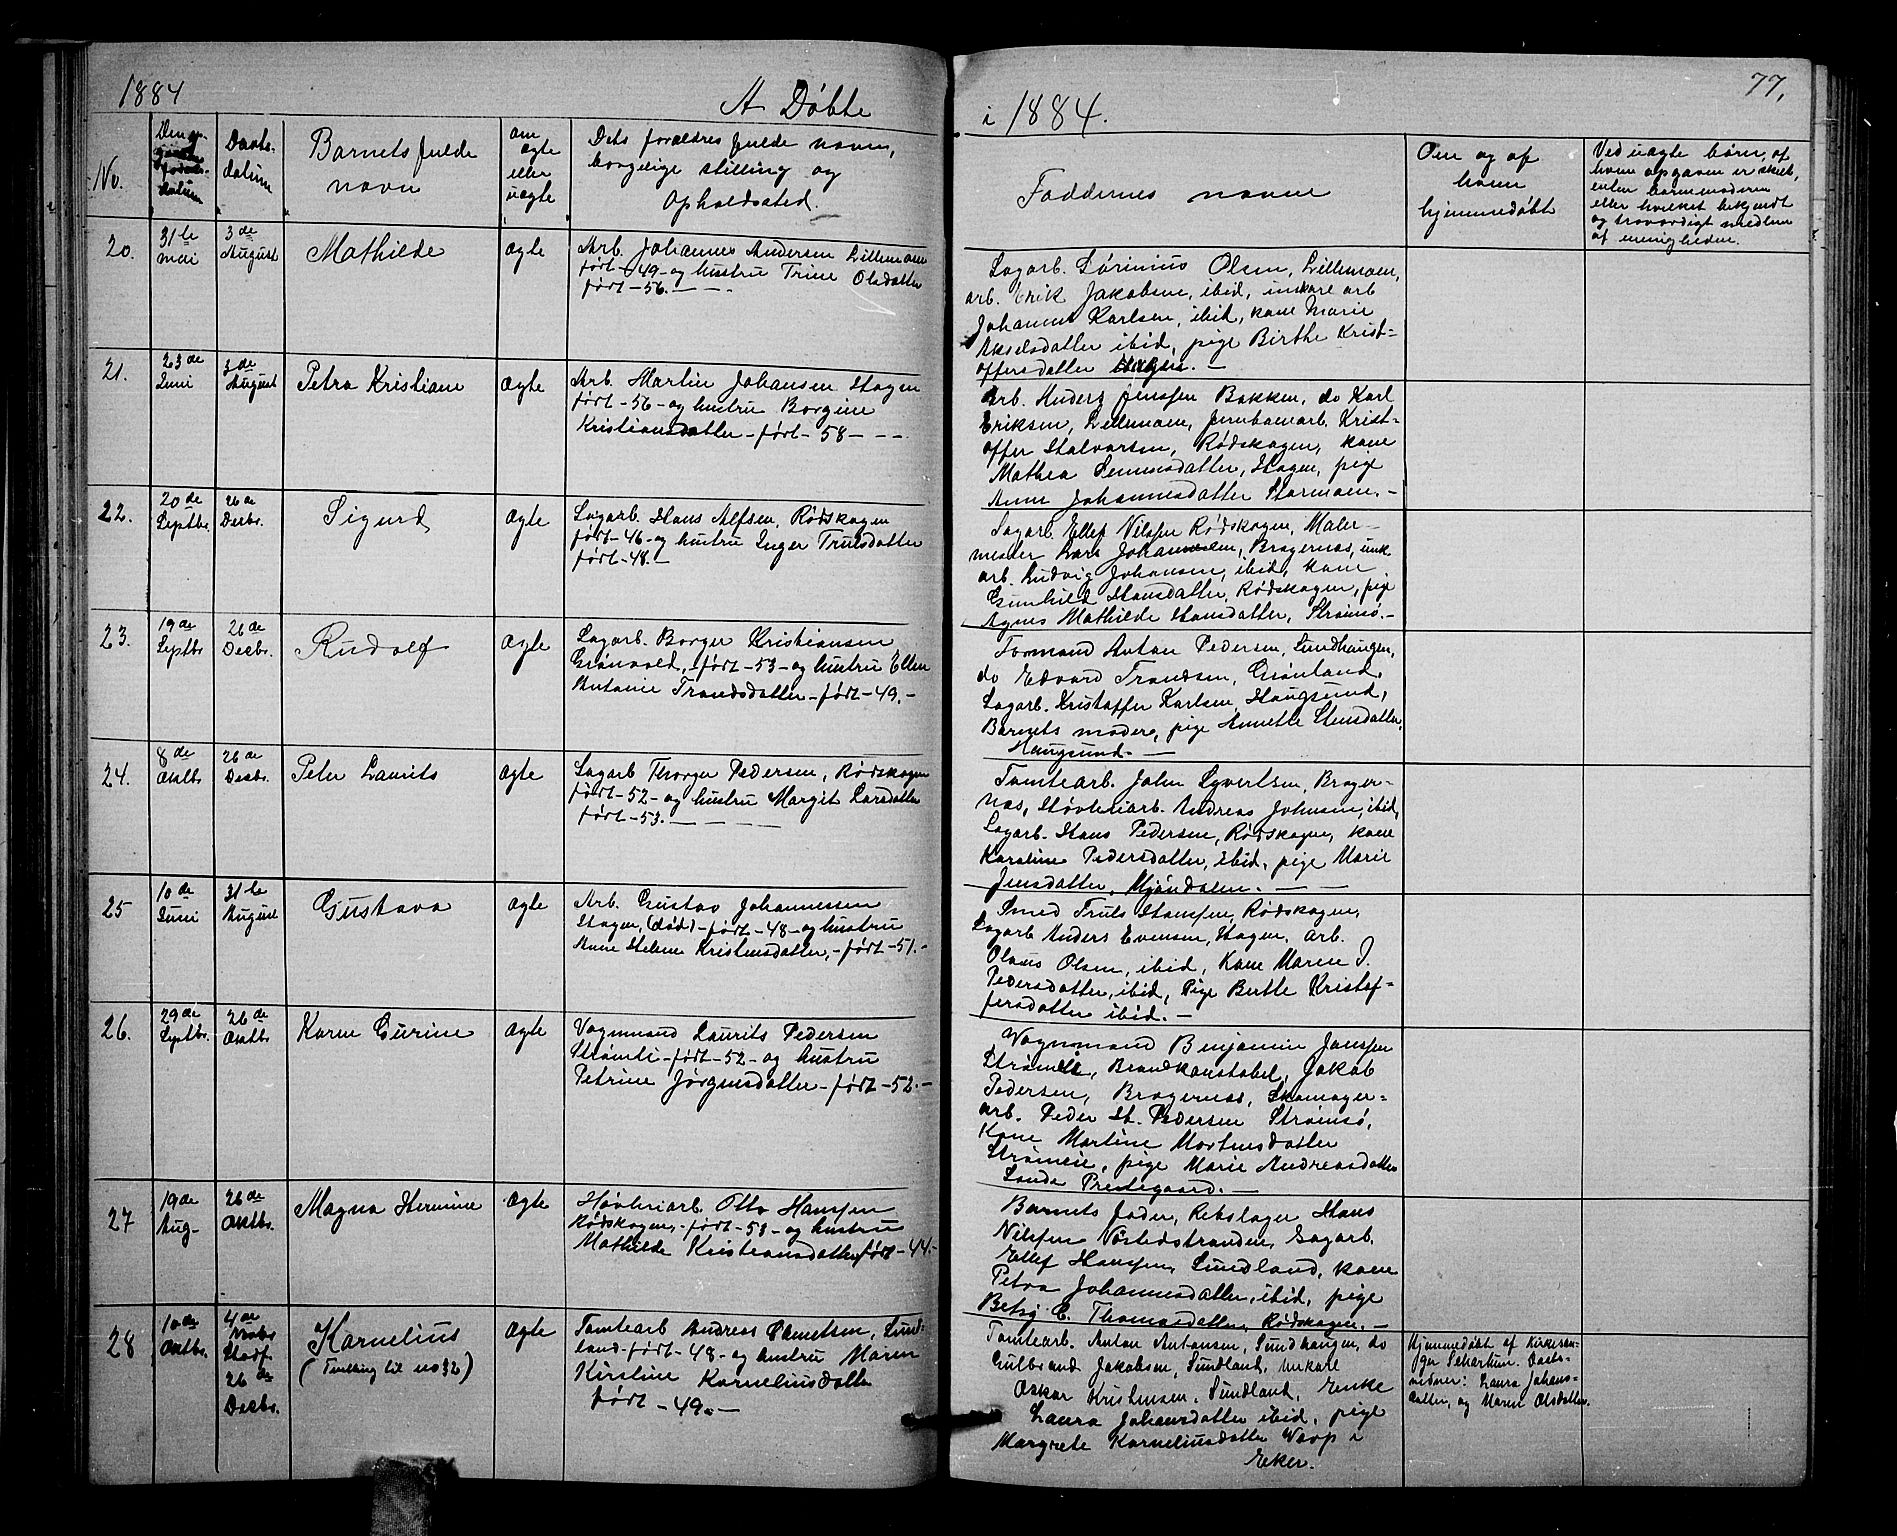 1884
A Døbte
No.
Daabs-
datum
Barnets fulde
navn
om
ægte
eller
uægte
Dets forældres fulde navn,
borgelige stilling og
Opholdssted.
20.
31te
mai
3de
August
Mathilde
Ægte
Arb. Johannes Andersen Lillemoen
født -49- og hustru Trine Olsdatter
født -56. - -
21.
23de
Juni
3de
August
Petra Kristiane
Ægte
Arb. Martin Johansen Hagen
født -56- og hustru Borgine
Kristiansdatter - født - 58 - - -
22.
20de
Septbr.
26de
Desbr.
Sigurd
Ægte
Sagarb. Hans Alfsen, Rødskogen
født -46- og hustru Inger Trulsdatter
født -48. -
23.
19de
Septbr
26de
Desbr.
Rudolf
Ægte
Sagarb. Borger Kristiansen
Grønvold, født -53- og hustru Ellen
Antonie Trondsdatter - født -49. -
24.
8de
Oktbr
26de
Desbr.
Peter Laurits
Ægte
Sagarb Thorger Pedersen, Rødskogen
født -52- og hustru Margit Larsdatter
født -53. -
25
10de
Juni
31te
August
Gustava
Ægte
Arb. Gustav Johannessen
Hagen, (død) - født -48- og hustru
Anne Helene Kristensdatter, - født -51. -
26.
29de
Septbr.
26de
Oktbr.
Karen Gurine
Ægte
Vognmand Laurits Pedersen
Strømli - født -52- og hustru
Petrine Jørgensdatter - født -52. -
27
19de
Aug-
26de
Oktbr.
Magna Hermine
Ægte
Høvleriarb. Otto Hanssen
Rødskogen, - født -53- og hustru
Mathilde Kristiansdatter født -44. -
28
10de
Oktbr.
4de
Novbr
26de
Desbr.
Kornelius
(Tvilling til no 32)
Ægte
Tomtearb Andreas Clemetsen, Sund-
land - født -48- og hustru Maren
Kirstine Korneliusdatter
født -49. -
77,
i 1884.
Faddernes navne
Om og af
hvem
hjemmedøbt
Ved uægte børn, af
hvem opgaven er skeet,
enten barnemoderen
eller hvilket bekjendt
og troværdigt medlem
af menigheden.
Sagarb. Sørinius Olsen, Lillemoen,
arb. Erik Jakobsen, ibid, unkare arb
Johannes Karlsen, ibid, kone Marie
Akselsdatter ibid, pige Birthe Krist=
offersdatter Hagen. -
Arb. Anders Jenssen Bakken, do Karl
Eriksen, Lillemoen, Jernbanearb. Krist-
offer Halvorsen, Rødskogen, kone
Mathea Simensdatter, Hagen, pige
Anne Johannesdatter Stormoen. -
Sagarb. Ellef Nilssen Rødskogen, Maler-
mester Lars Johannesen, Bragernæs, unk.
arb. Ludvig Johansen, ibid, kone
Gunhild Hansdatter, Rødskogen, pige
Agnes Mathilde Hansdatter, Strømsø. -
Formand Anton Pedersen, Sundhaugen,
do Edvard Trondsen, Grønland,
Sagarb. Kristoffer Karlsen, Haugsund,
Barnets moder, pige Annette Stensdatter,
Haugsund. -
Tomtearb. John Syvertsen, Brager-
næs, Høvleriarb. Andreas Johnsen, ibid,
Sagarb. Hans Pedersen, Rødskogen, kone
Karoline Pedersdatter, ibid, pige Marie
Jensdatter, Mjøndalen. - -
Smed Truls Hanssen, Rødskogen,
Sagarb Anders Evensen, Hagen, Arb.
Olaus Olsen, ibid, Kone Maren J.
Pedersdatter, ibid, Pige Berthe Kristof-
fersdatter ibid. -
Vognmand Benjamin Janssen
Strømlie, Brandkonstabel, Jakob
Pedersen, Bragernæs, Skomager=
arb. Peder H. Pedersen Strømsø,
Kone Martine Mortensdatter
Strømlie, pige Marie Andreasdatter
Sande Prestegaard. -
Barnets fader, Rebslager Hans
Nilssen Nøstedstranden, Sagarb.
Ellef Hanssen, Sundland, kone
Petra Johannesdatter, ibid, pige
Betsy C. Thomasdatter, Rødskogen. -
Tomtearb. Anton Antonsen, Sundhaugen, do
Gulbrand Jakobsen, Sundland, Unkare
Oskar Kristensen, Sundland, Enke
Laura Johansdatter ibid, pige
Margrete Korneliusdatter Warp i
Eker.
Hjemmedøbt af Kirkesan-
ger Schartum. Daabs-
vidner: Laura Johans-
datter, og Maren Olsdatter.